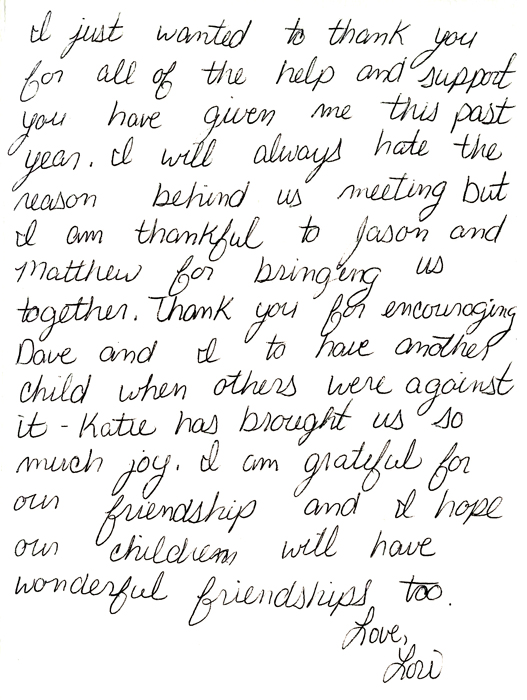 I just wanted to thank you
for all of the help and support
you have given me this past
year. I will always hate the
reason behind us meeting but
I am thankful to Jason and
Matthew for bringing us
together. Thank you for encouraging
Dave and I to have another
child when others were against
it - Katie has brought us so
much joy. I am grateful for
our friendship and I hope
our children will have
wonderful friendships too.
Love,
Lori